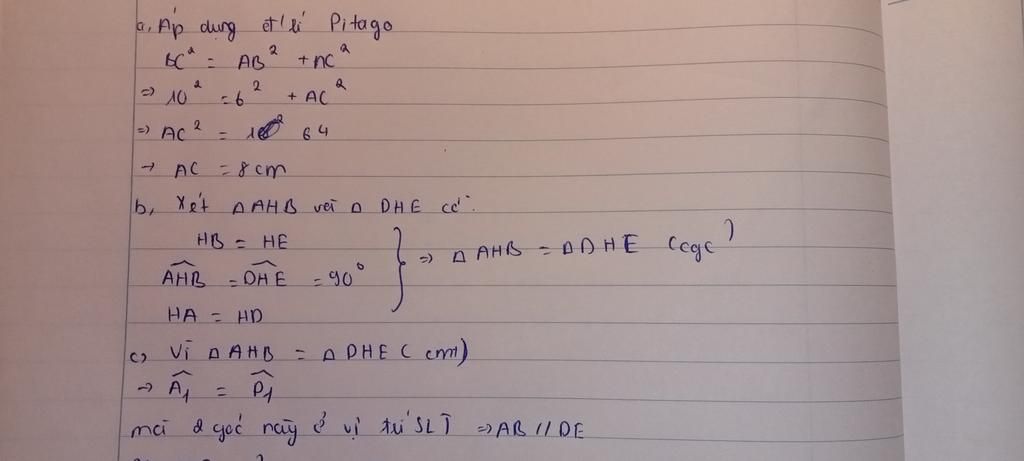 a, Áp dụng đ/lí Pitago
BC² = AB² + AC²
=> 10² = 6² + AC²
=> AC² = 64
-> AC = 8cm
b, Xét △AHB với △DHE có:
HB = HE
AHB = DHE = 90°
HA = HD
} => △AHB = △DHE (cgc)
c, Vì △AHB = △DHE (cmt)
-> A₁ = D₁
mà 2 góc này ở vị trí SLT => AB // DE